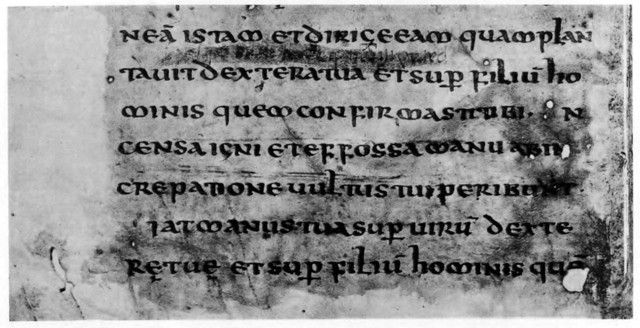 neā istam et dirige eam quam plan
tavit dextera tua et sup filiū ho
minis quem confirmasti tibi · n
censa igni et effossa manu ab in
crepatione vultus tui peribunt ·
iat manus tua sup virū dexte
re tue et sup filiū hominis quē